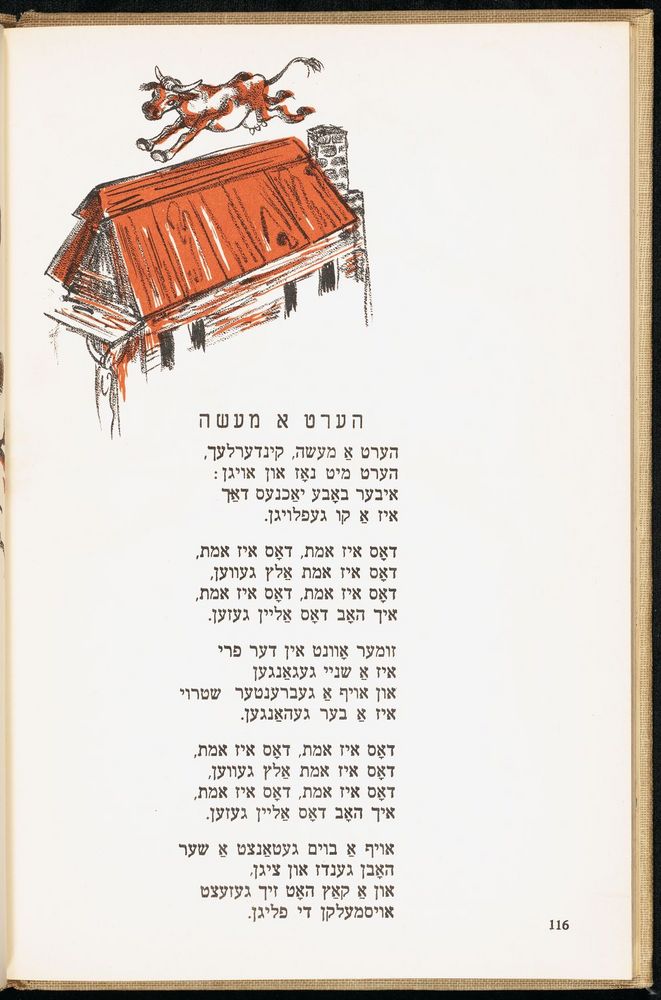 הערט א מעשה
הערט אַ מעשה, קינדערלעך,
הערט מיט נאָז און אויגן:
איבער באָבע יאַכנעס דאַך
איז אַ קו געפלויגן.
דאָס איז אמת, דאָס איז אמת,
דאָס איז אמת אַלץ געווען,
דאָס איז אמת, דאָס איז אמת,
איך האָב דאָס אַליין געזען.
זומער אָוונט אין דער פרי
איז אַ שניי געגאַנגען
און אויף אַ געברענטער שטרוי
איז אַ בער געהאַנגען.
דאָס איז אמת, דאָס איז אמת,
דאָס איז אמת אַלץ געווען,
דאָס איז אמת, דאָס איז אמת,
איך האָב דאָס אַליין געזען.
אויף אַ בוים געטאַנצט אַ שער
האָבן גענדז און ציגן,
און אַ קאַץ האָט זיך געזעצט
אויסמעלקן די פליגן.
116